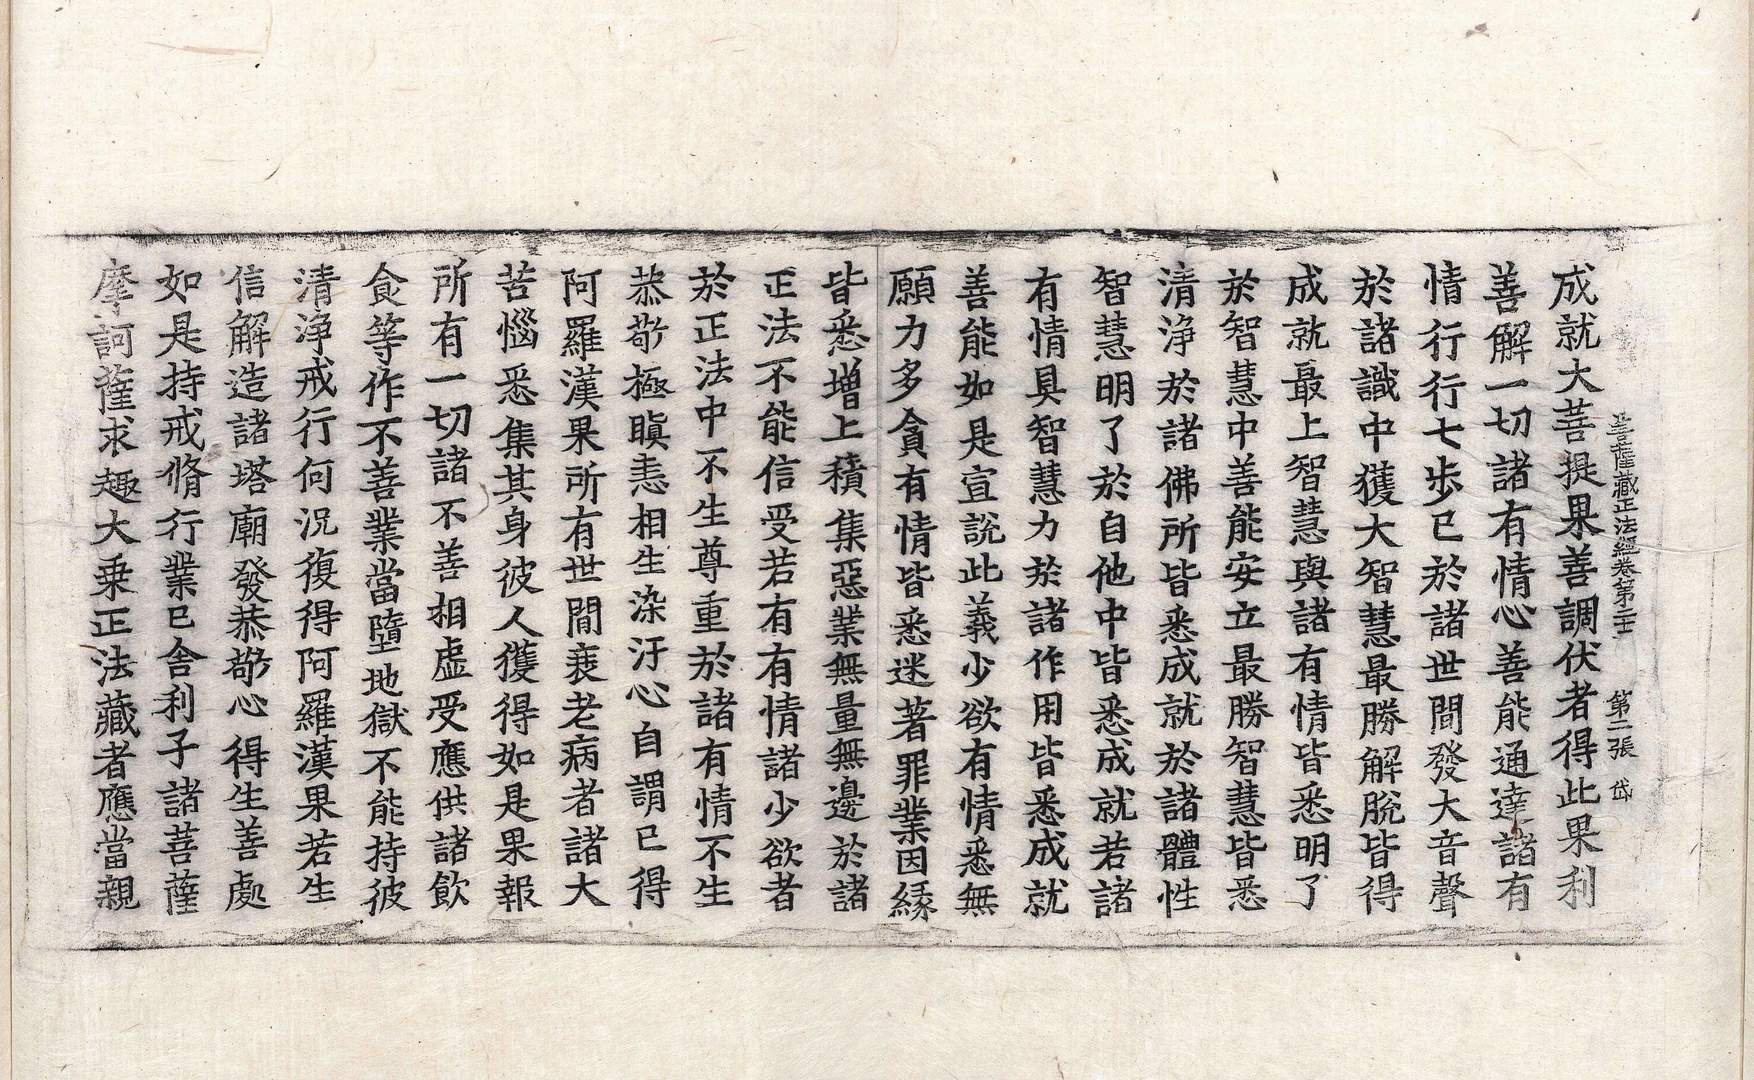 菩薩藏正法經卷第三十 第二張 岱
成就大菩提果善調伏者得此果利
善解一切諸有情心善能通達諸有
情行行七步已於諸世間發大音聲
於諸識中獲大智慧最勝解脫皆得
成就最上智慧與諸有情皆悉明了
於智慧中善能安立最勝智慧皆悉
清淨於諸佛所皆悉成就於諸體性
智慧明了於自他中皆悉成就若諸
有情具智慧力於諸作用皆悉成就
善能如是宣說此義少欲有情悉無
願力多貪有情皆悉迷著罪業因緣
皆悉增上積集惡業無量無邊於諸
正法不能信受若有有情諸少欲者
於正法中不生尊重於諸有情不生
恭敬極瞋恚相生染汙心自謂已得
阿羅漢果所有世間衰老病者諸大
苦惱悉集其身彼人獲得如是果報
所有一切諸不善相虛受應供諸飲
食等作不善業當墮地獄不能持彼
清淨戒行何況復得阿羅漢果若生
信解造諸塔廟發恭敬心得生善處
如是持戒脩行業已舍利子諸菩薩
摩訶薩求趣大乘正法藏者應當親